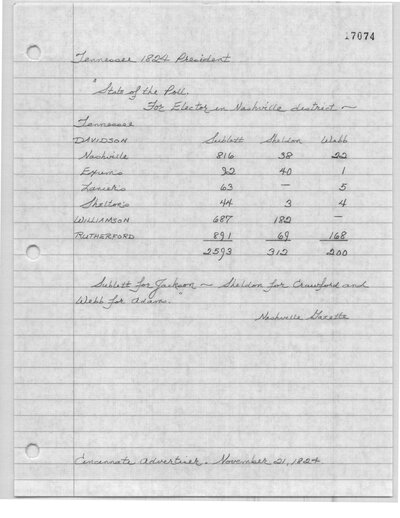 17074
Tennessee 1824 President
"State of the Poll.
For Elector in Nashville district ~
Tennessee
DAVIDSON Sublett Sheldon Webb
Nashville 816 38 22
Exum's 92 40 1
Lanier's 63 — 5
Shelton's 44 3 4
WILLIAMSON 687 182 —
RUTHERFORD 891 69 168
2593 312 200
Sublett for Jackson ~ Sheldon for Crawford and
Webb for Adams."
Nashville Gazette
Cincinnate Advertiser. November 21, 1824.